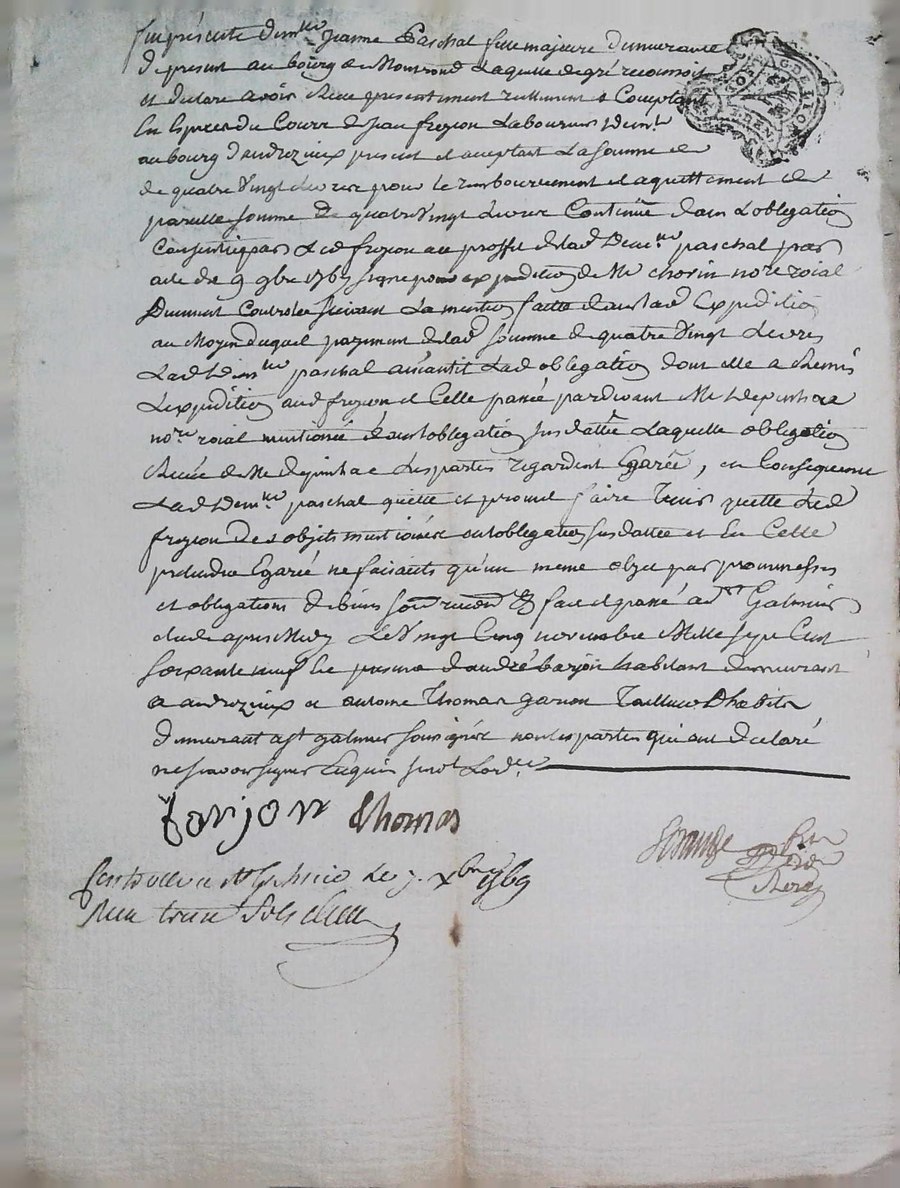 fut présente dem.lle Jeanne Paschal fille majeure demeurante
de present au bourg de Montrond Laquelle de gré reconnoit
et declare avoir Receu presentement reellement et Comptant
En Espices du Cours de Jean frejon Laboureur dem.t
au bourg d'andrezieux present et acceptant La somme de
de quatre Vingt Livres pour le remboursement et aquittement de
pareille somme de quatre Vingt Livres Contenüe dans L'obligation
Consentie par Led frejon au proffit de lad Dem.lle paschal par
acte du 9 9bre 1767 signé pour expedition de Me chorin no.re roial
Duement Controlée suivant La mention faitte dans lad Expedition
au Moyen duquel payement de lad somme de quatre Vingt Livres
Lad dem.lle paschal anéantit Lad obligation dont elle a Remis
L'expedition aud frejon et Celle passée pardevant Me
no.re roial mentionée dans l'obligation susdattée Laquelle obligation
Receüe de Me Les parties regardent Egarée, en Consequence
Lad Dem.lle paschal quitte et promet faire tenir quitte Led
frejon des objets mentionés en l'obligation susdattée et En Celle
pretendüe Egarée ne faisants qu'un meme objet par promesses
et obligations de biens soum renon &c fait et passé a St Galmier
étude apres Midy Le Vingt Cinq novembre Mille Sept Cent
soixante neuf En presence d'andré barjon habitant demeurant
a andrezieux et antoine Thomas garçon Tailleur D'habits
demeurant a St galmier soussignés non les parties qui ont declaré
ne sçavoir signer Enquis
barjon Thomas
Controllé a St Galmier Le 7 Xbre 1769
Receu treize sols